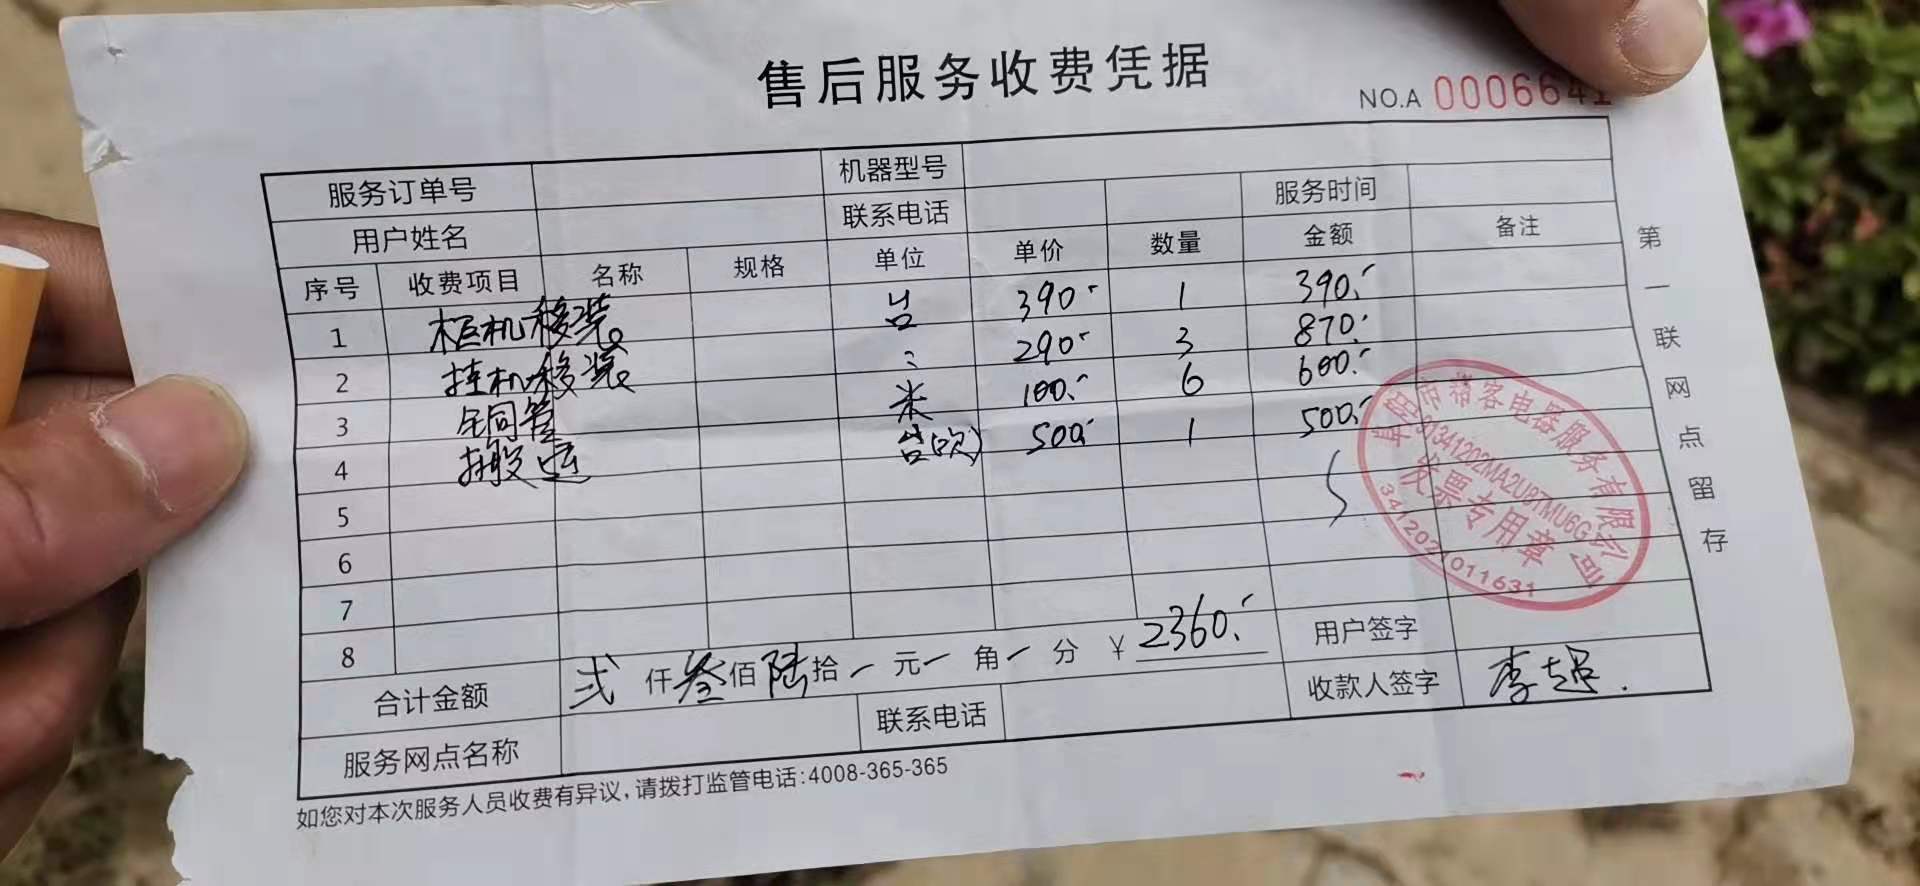 售后服务收费凭据
NO.A 0006641
服务订单号 机器型号 服务时间
用户姓名 联系电话
序号 收费项目 名称 规格 单位 单价 数量 金额 备注
1 柜机移装 台 390.- 1 390.-
2 挂机移装 〃 290.- 3 870.-
3 铜管 米 100.- 6 600.-
4 搬运 台(次) 500.- 1 500.-
5
6
7
8
合计金额 弍 仟 叁 佰 陆 拾 一 元 一 角 一 分 ¥ 2360.- 用户签字
服务网点名称 联系电话 收款人签字 李超.
如您对本次服务人员收费有异议,请拨打监管电话:4008-365-365
第一联网点留存
阜阳市帮客电器服务有限公司
91341202MA2U8TMU6G
发票专用章